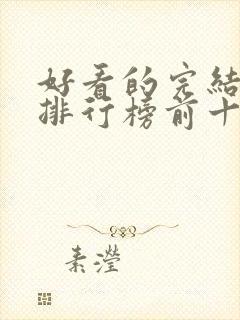 好看的完結
排行榜前十
素瀅